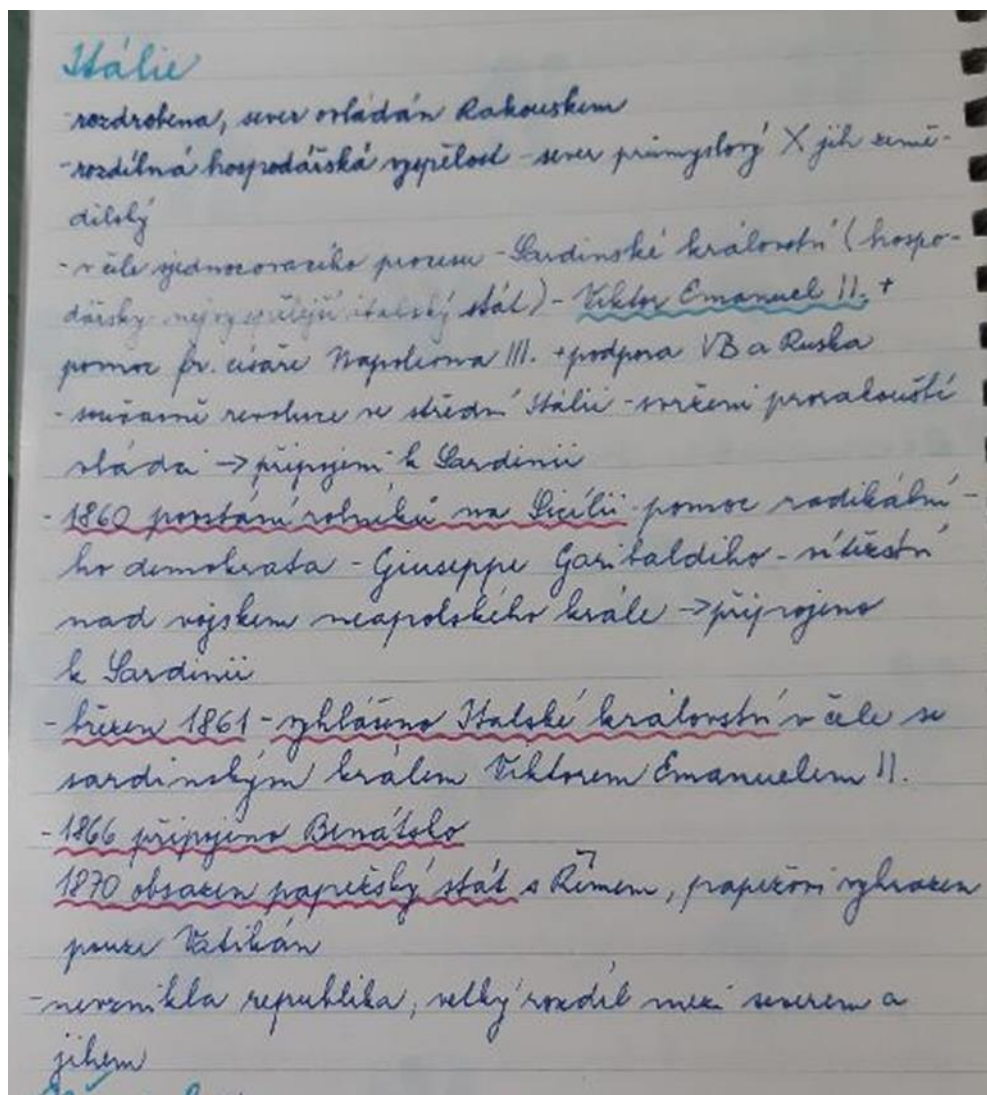 Itálie
-rozdrobena, sever ovládán Rakouskem
-rozdílná hospodářská vyspělost -sever průmyslový X jih země-
dělský
-v čele sjednocovacího procesu -Sardinské království (hospo-
dářsky nejvyspělejší italský stát) - Viktor Emanuel II. +
pomoc fr. císaře Napoleona III. +podpora VB a Ruska
-současně revoluce ve střední Itálii -svržení prorakouští
vládci -> připojení k Sardinii
- 1860 povstání rolníků na Sicílii - pomoc radikální-
ho demokrata - Giuseppe Garibaldiho - vítězství
nad vojskem neapolského krále -> připojeno
k Sardinii
- březen 1861 - vyhlášeno Italské království v čele se
sardinským králem Viktorem Emanuelem II.
- 1866 připojeno Benátsko
1870 obsazen papežský stát s Římem, papežovi vyhrazen
pouze Vatikán
-nevznikla republika, velký rozdíl mezi severem a
jihem